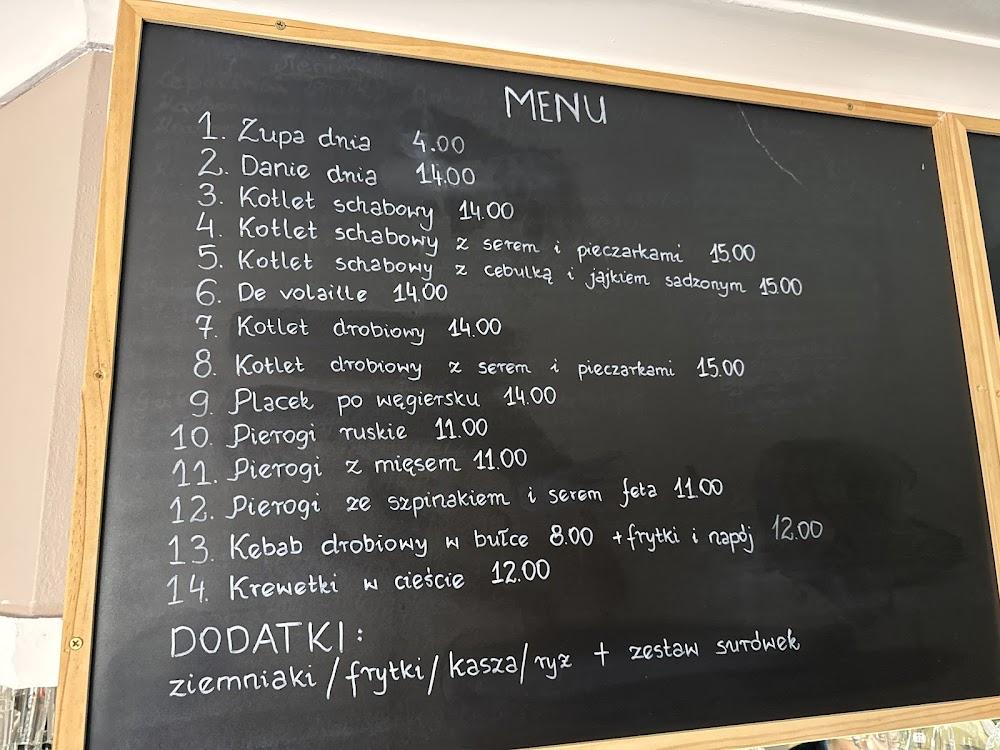 MENU
1. Zupa dnia 4.00
2. Danie dnia 14.00
3. Kotlet schabowy 14.00
4. Kotlet schabowy z serem i pieczarkami 15.00
5. Kotlet schabowy z cebulką i jajkiem sadzonym 15.00
6. De volaille 14.00
7. Kotlet drobiowy 14.00
8. Kotlet drobiowy z serem i pieczarkami 15.00
9. Placek po węgiersku 14.00
10. Pierogi ruskie 11.00
11. Pierogi z mięsem 11.00
12. Pierogi ze szpinakiem i serem feta 11.00
13. Kebab drobiowy w bułce 8.00 + frytki i napój 12.00
14. Krewetki w cieście 12.00
DODATKI:
ziemniaki / frytki / kasza / ryz + zestaw surówek